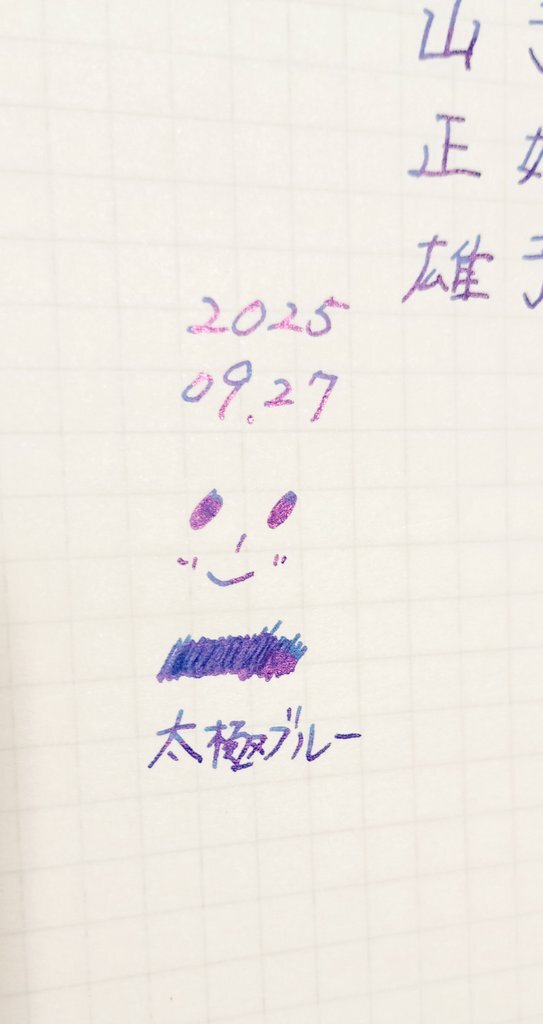 山
正
雄
2025
09.27
太極ブルー